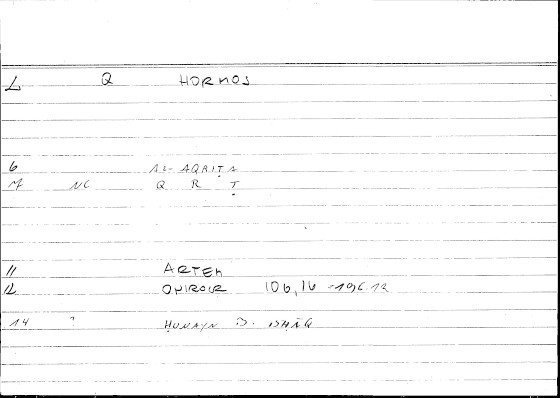 L Q HORMOS
6 AL-AQRIṬA
M NC Q R Ṭ
11 ARTEM
12 ONIROCR 106,16 - 196.12
14 ? ḤUNAYN B. ISḤĀQ